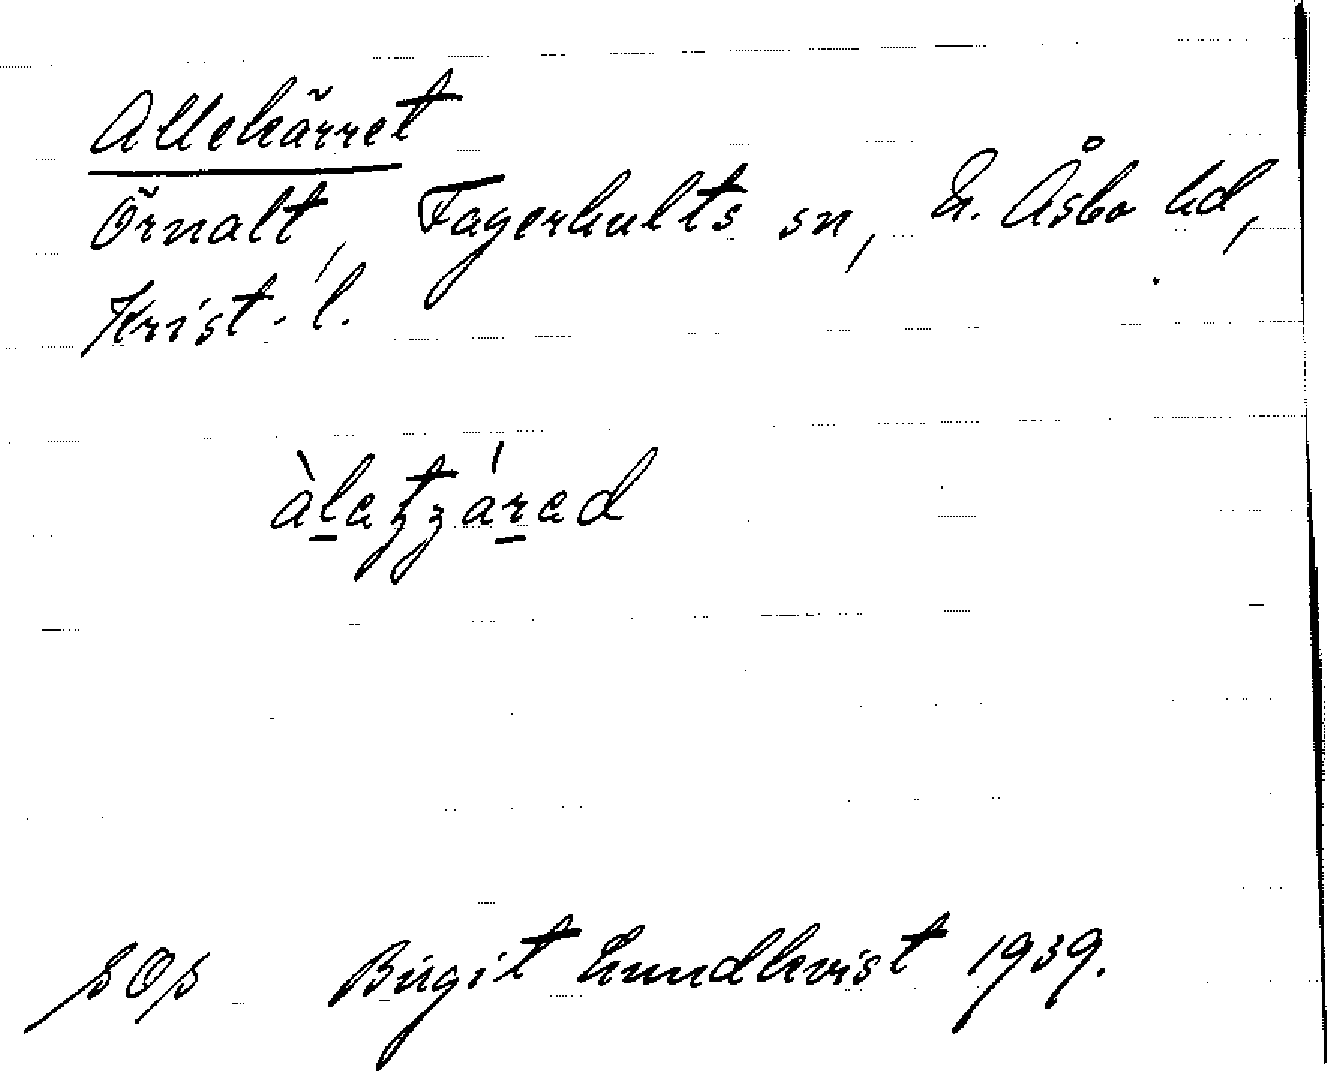 Allekärret
Örnalt, Fagerhults sn, N. Åsbo hd,
Krist. l.
Birgit Lundkvist 1939.